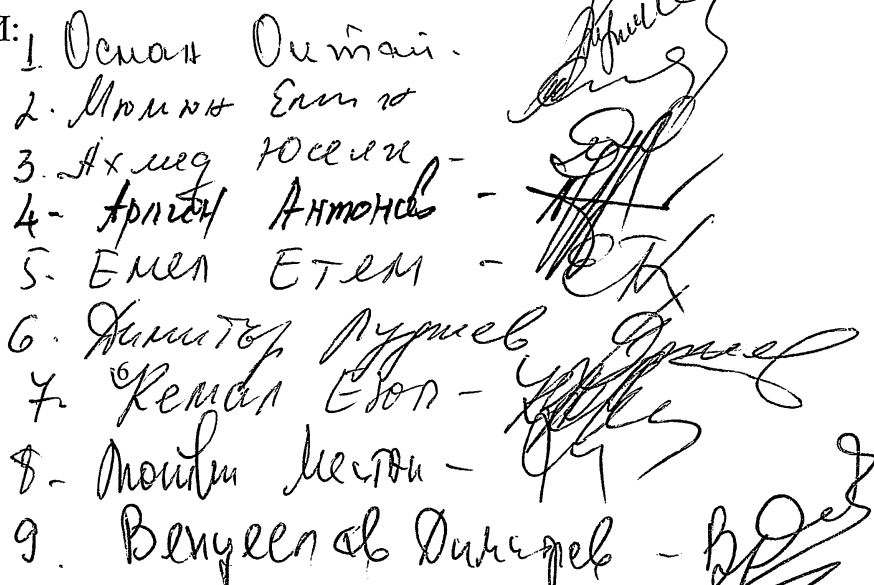 И:
1. Осман Октай -
2. Мюмюн Емин
3. Ахмед Юсеин -
4 - Арлин Антонов -
5. Емел Етем -
6. Димитър Луджев
7. Кемал Еюп -
8 - Лютви Местан -
9. Венцеслав Димитров -